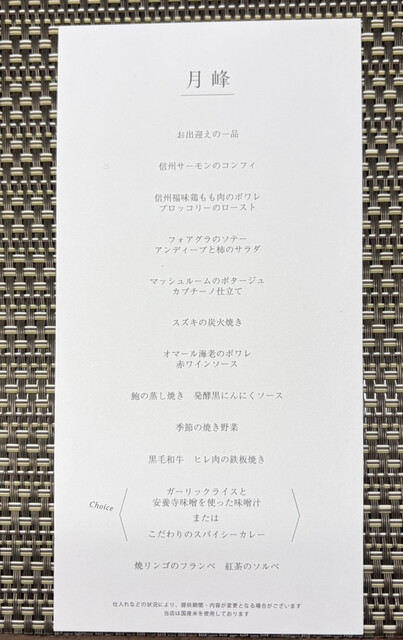 月峰
お出迎えの一品
信州サーモンのコンフィ
信州福味鶏もも肉のポワレ
ブロッコリーのロースト
フォアグラのソテー
アンディーブと柿のサラダ
マッシュルームのポタージュ
カプチーノ仕立て
スズキの炭火焼き
オマール海老のポワレ
赤ワインソース
鮑の蒸し焼き　発酵黒にんにくソース
季節の焼き野菜
黒毛和牛　ヒレ肉の鉄板焼き
Choice
ガーリックライスと
安養寺味噌を使った味噌汁
または
こだわりのスパイシーカレー
焼リンゴのフランベ　紅茶のソルベ
仕入れなどの状況により、提供期間・内容が変更となる場合がございます
当店は国産米を使用しております